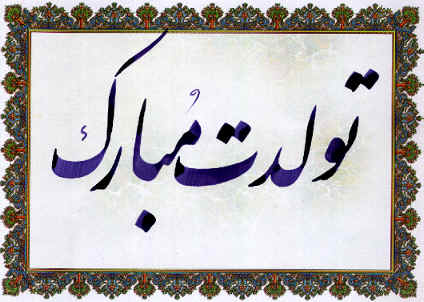 تولدت مُبارک